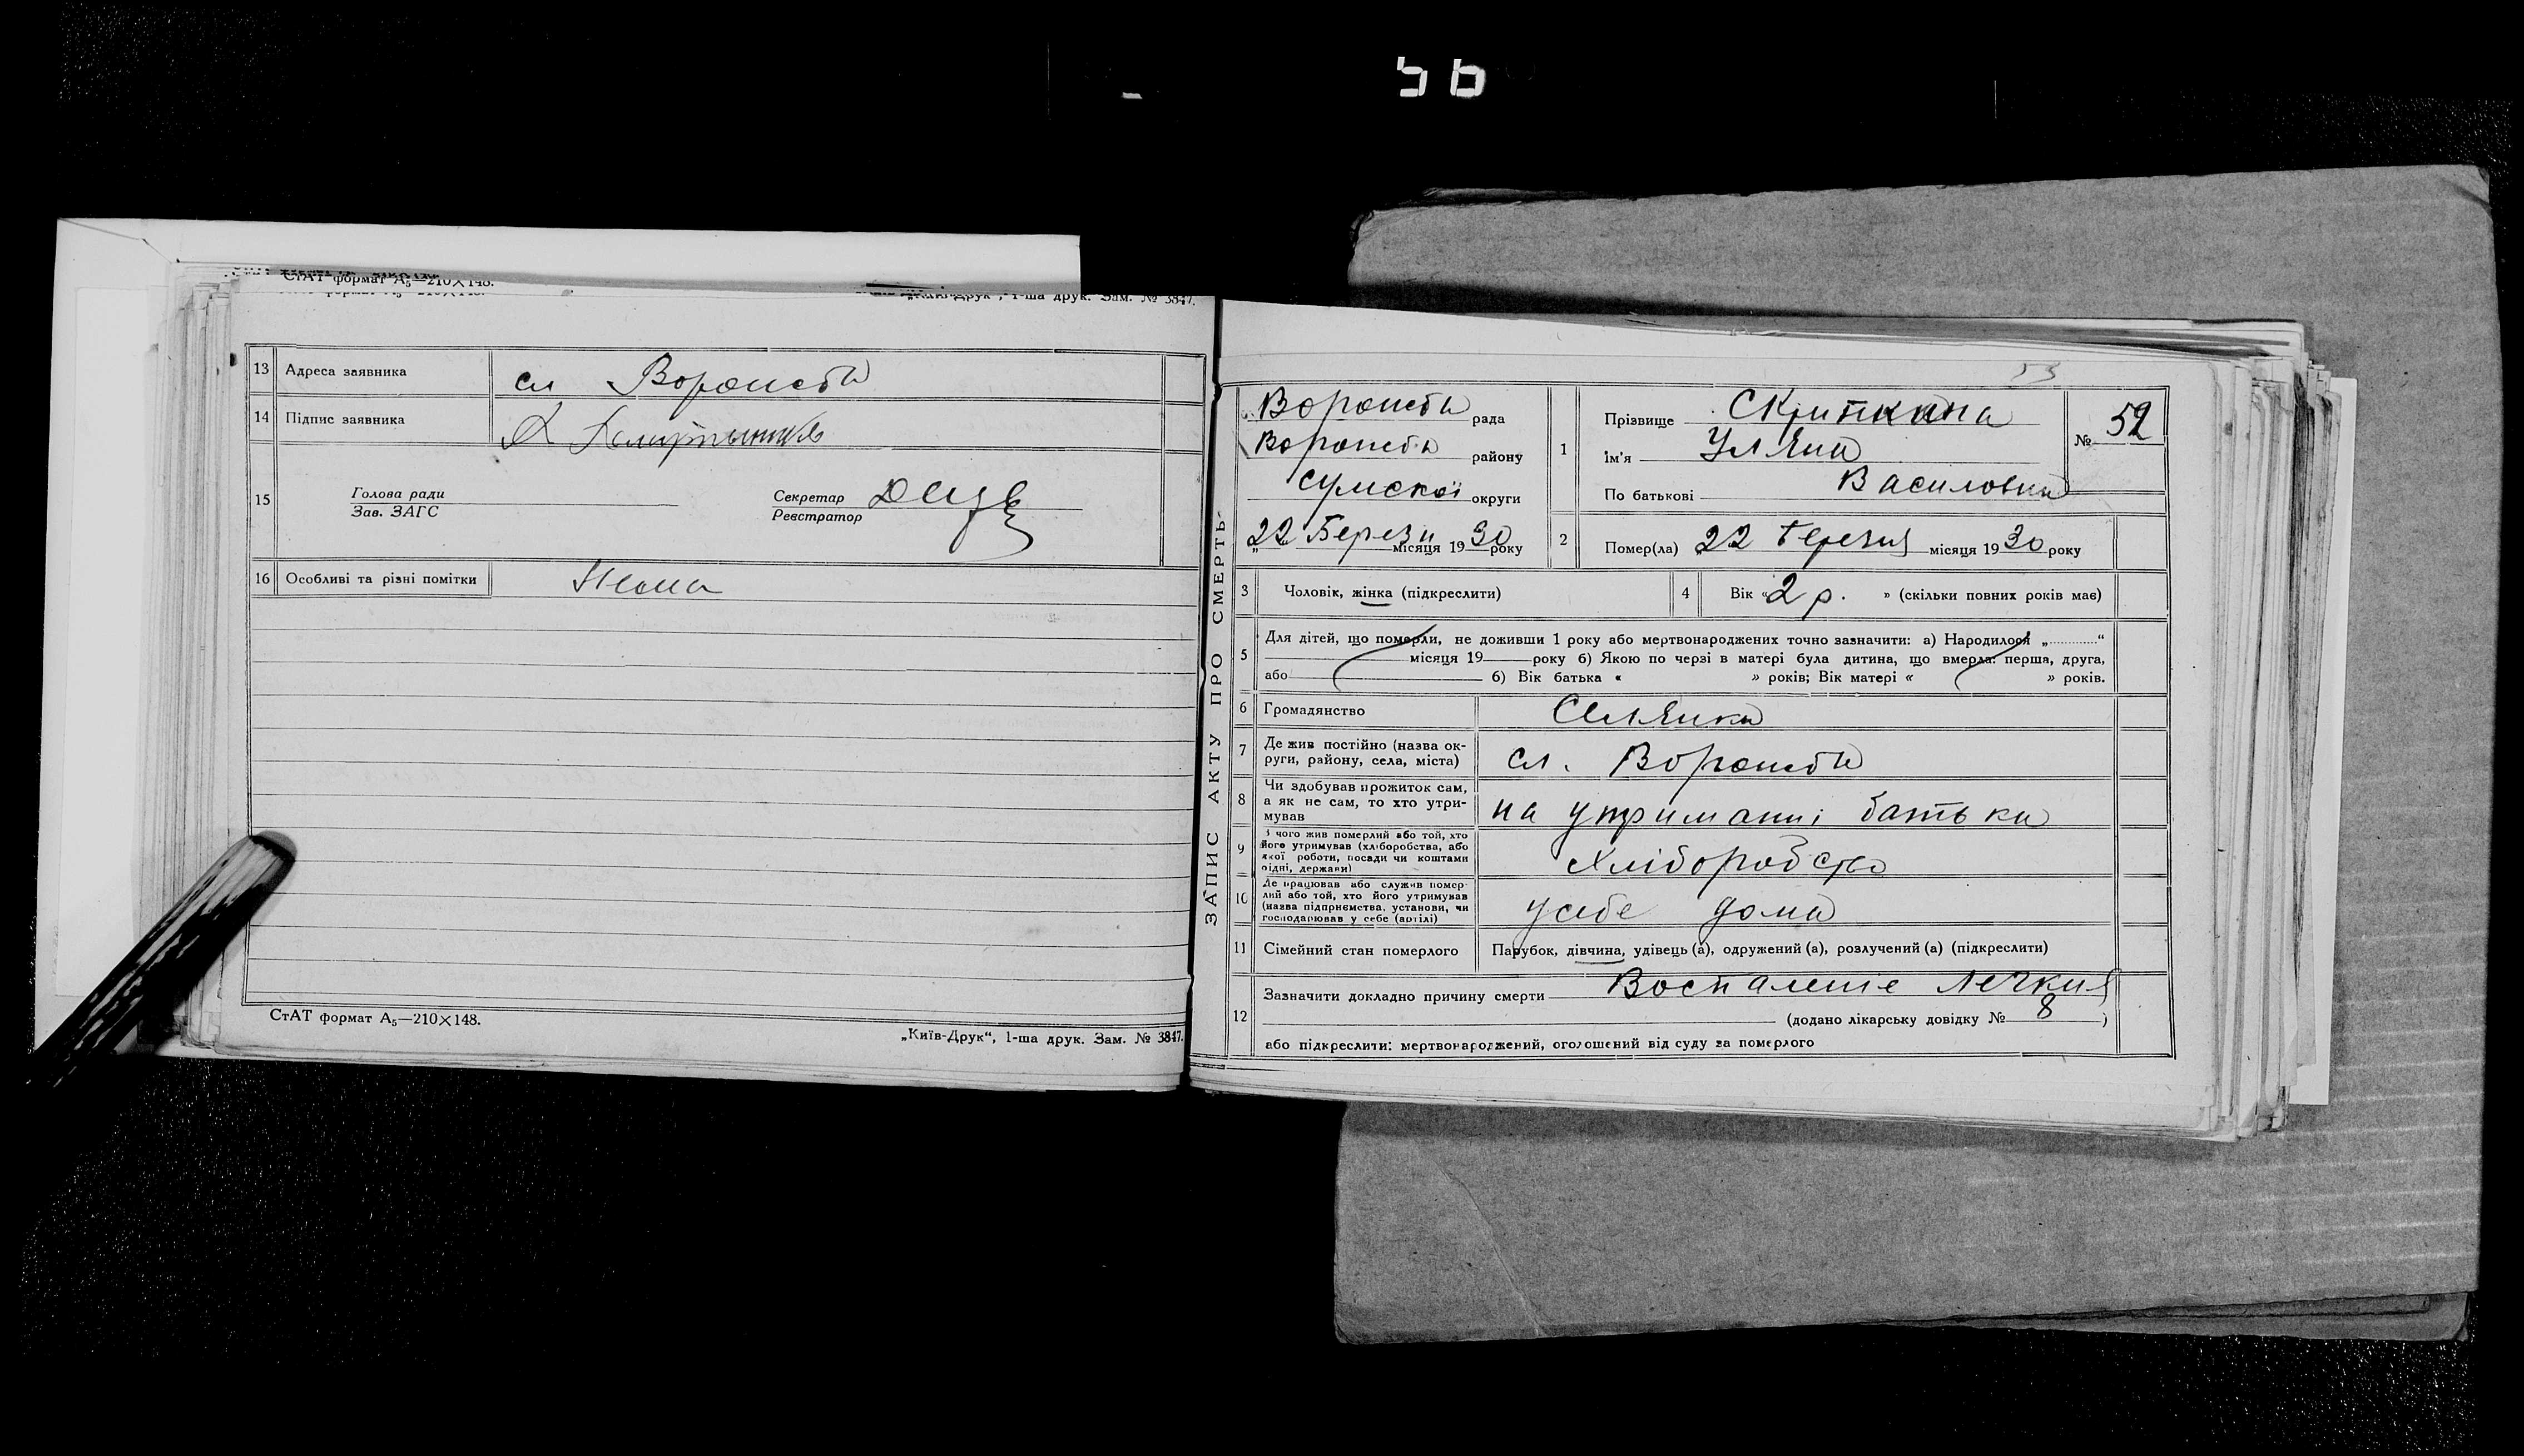 56
СтАТ формат А₅—210×148.
„Київ-Друк“, 1-ша друк. Зам. № 3847.
13 Адреса заявника сл Ворожба
14 Підпис заявника
15 Голова ради
Зав. ЗАГС
Секретар
Реєстратор
16 Особливі та різні помітки Нема
СтАТ формат А₅—210×148.
„Київ-Друк“, 1-ша друк. Зам. № 3847.
ЗАПИС АКТУ ПРО СМЕРТЬ
53
Ворожба рада
Ворожба району
Сумскої округи
„22 Березн місяця 1930 року
1 Прізвище Скрипкина
Ім'я Уляна
По батькові Василовна
№ 52
2 Помер(ла) 22 березня місяця 1930 року
3 Чоловік, жінка (підкреслити)
4 Вік «2 р. » (скільки повних років має)
5 Для дітей, що померли, не доживши 1 року або мертвонароджених точно зазначити: а) Народилося „ “
місяця 19 року б) Якою по черзі в матері була дитина, що вмерла: перша, друга,
або б) Вік батька « » років; Вік матері « » років.
6 Громадянство Селянка
7 Де жив постійно (назва ок-
руги, району, села, міста) сл. Ворожба
8 Чи здобував прожиток сам,
а як не сам, то хто утри-
мував на утриманні батька
9 З чого жив померлий або той, хто
його утримував (хліборобства, або
якої роботи, посади чи коштами
рідні, держави) хліборобство
10 Де працював або служив помер-
лий або той, хто його утримував
(назва підприємства, установи, чи
господарював у себе (артілі) усебе дома
11 Сімейний стан померлого Парубок, дівчина, удівець (а), одружений (а), розлучений (а) (підкреслити)
12 Зазначити докладно причину смерти Воспаленіе легких
(додано лікарську довідку № 8 )
або підкреслити: мертвонароджений, оголошений від суду за померлого